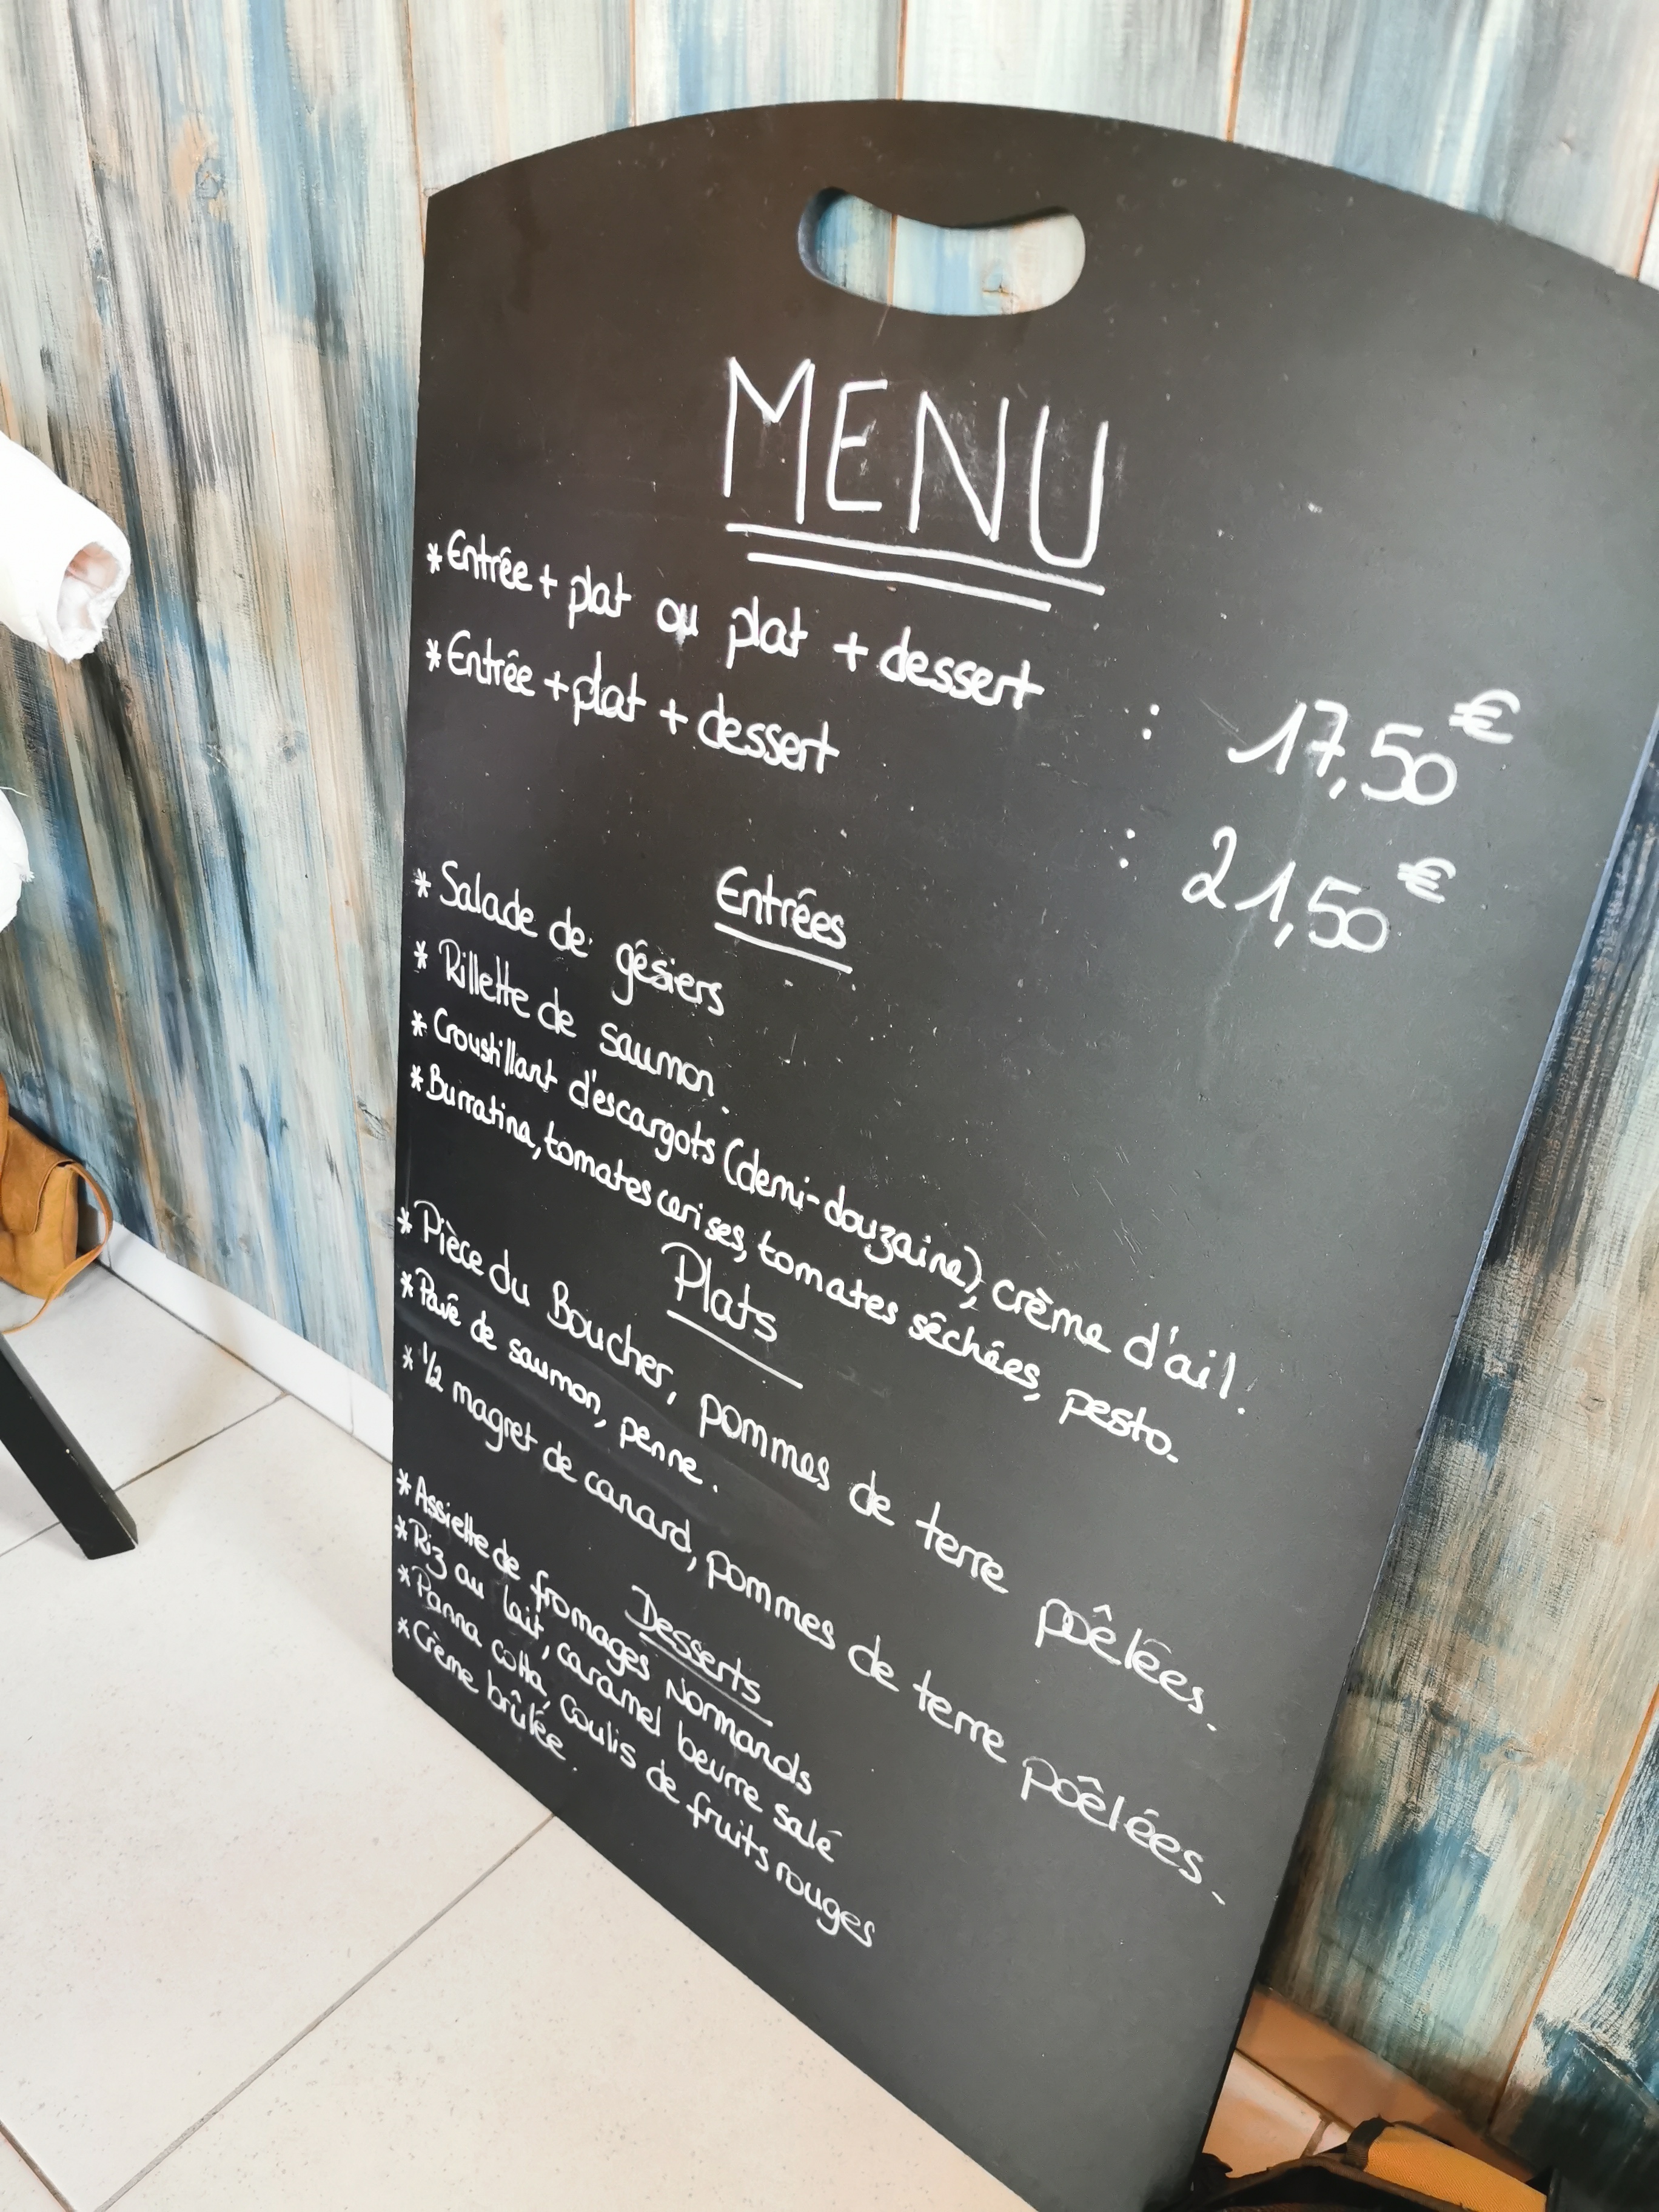 MENU
* Entrée + plat ou plat + dessert : 17,50€
* Entrée + plat + dessert : 21,50€
Entrées
* Salade de gésiers
* Rillette de saumon.
* Croustillant d'escargots (demi-douzaine), crème d'ail.
* Burratina, tomates cerises, tomates séchées, pesto.
Plats
* Pièce du Boucher, pommes de terre poêlées.
* Pavé de saumon, penne.
* 1/2 magret de canard, pommes de terre poêlées.
Desserts
* Assiette de fromages Normands
* Riz au lait, caramel beurre salé
* Panna cotta, coulis de fruits rouges
* Crème brûlée.